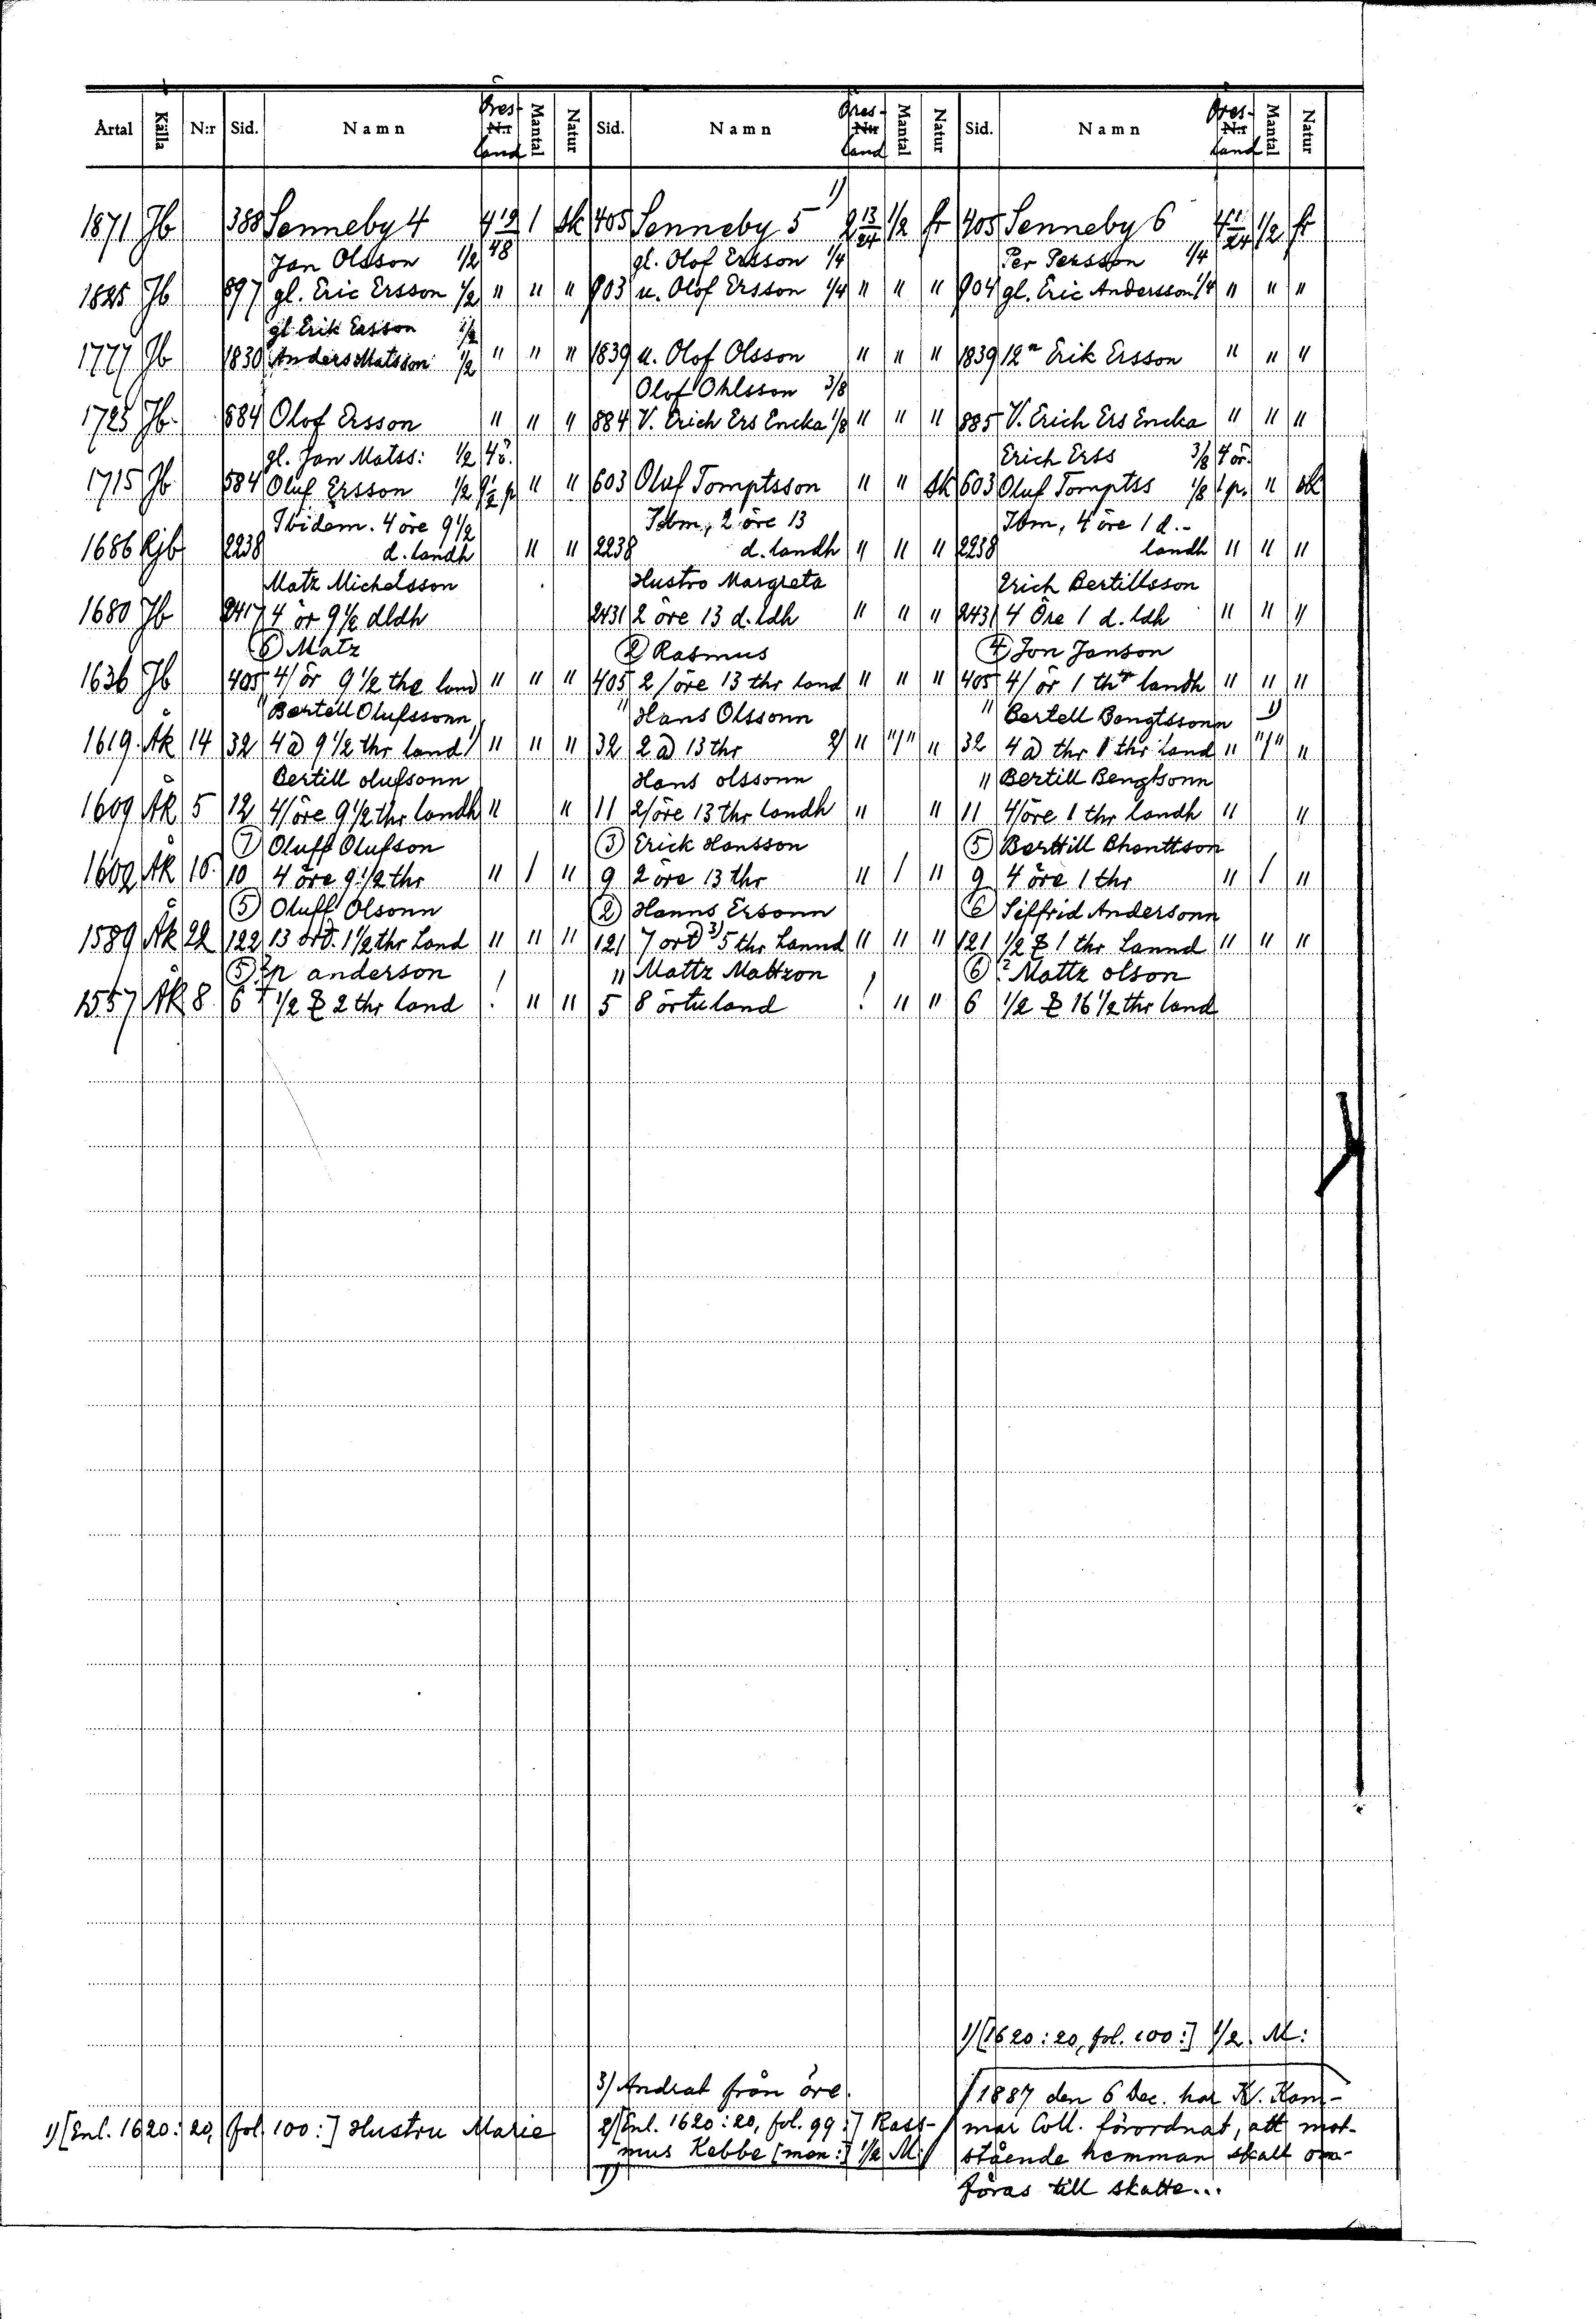 Årtal Källa N:r Sid. Namn Öres- N:r land Mantal Natur Sid. Namn Öres- N:r land Mantal Natur Sid. Namn Öres- N:r land Mantal Natur
1871 Jb 388 Senneby 4 4 19/48 1 sk 405 Senneby 5 1) 2 13/24 1/2 fr 405 Senneby 6 4 1/24 1/2 fr
Jan Olsson 1/2 gl. Olof Ersson 1/4 Per Persson 1/4
1825 Jb 897 gl. Eric Ersson 1/2 " " " 903 u. Olof Ersson 1/4 " " " 904 gl. Eric Andersson 1/4 " " "
gl Erik Ersson 1/2
1777 Jb 1830 Anders Matsson 1/2 " " " 1839 u. Olof Olsson " " " 1839 12n Erik Ersson " " "
Olof Ohlsson 3/8
1725 Jb. 884 Olof Ersson " " " 884 V. Erich Ers Encka 1/8 " " " 885 V. Erich Ers Encka " " "
gl. Jan Matss: 1/2 4ö. Erich Erss 3/8 4 ör.
1715 Jb 584 Oluf Ersson 1/2 9 1/2 p " " 603 Oluf Tomptsson " " sk 603 Oluf Tomptss 1/8 1 p. " sk
Ibidem. 4 öre 9 1/2 Ibm, 2 öre 13 Ibm, 4 öre 1 d.-
1686 Rjb 2238 d. landh " " 2238 d. landh " " " 2238 landh " " "
Matz Michelsson Hustro Margreta Erich Bertillsson
1680 Jb 2417 4 ör 9 1/2 dldh 2431 2 öre 13 d. ldh " " " 2431 4 Öre 1 d. ldh " " "
Matz (2) Rasmus (4) Jon Janson
1636 Jb 405 4/ ör 9 1/2 the land " " " 405 2 /öre 13 thr land " " " 405 4/ ör 1 thr landh " " "
" Bertell Olufssonn " Hans Olssonn " Bertell Bengtssonn 1)
1619. Äk 14 32 4 a 9 1/2 thr land 1) " " " 32 2 a 13 thr 2) " "/" " 32 4 a thr 1 thr land " "/" "
Bertill olufsonn Hans olssonn " Bertill Bengtsonn
1609 Åk 5 12 4/öre 9 1/2 thr landh " " 11 2/öre 13 thr landh " " 11 4/öre 1 thr landh " "
(7) Oluff Olufson (3) Erick Hansson (5) Berttill Bhenttson
1602 Åk 16. 10 4 öre 9 1/2 thr " / " 9 2 öre 13 thr " / " 9 4 öre 1 thr " / "
(5) Oluff Olsonn (2) Hanns Ersonn (6) Siffrid Andersonn
1589 Åk 22 122 13 ord. 1 1/2 thr Land " " " 121 7 ord 3) 5 thr Lannd " " " 121 1/2 1 thr Lannd " " "
(5) anderson " Mattz Mattzon (6) Mattz olson
1557 Äk 8. 6 1/2 2 thr land ! " " 5 8 örtuland ! " " 6 1/2 16 1/2 thr land
1) [1620:20, fol. 100:] 1/2 M:
3) Andrat från öre. 1887 den 6 Dec. har K. Kam-
1) [Enl. 1620:20, fol 100:] Hustru Marie 2) [Enl. 1620:20, fol. 99:] Rass- mar Coll. förordnat, att mot-
mus Kebbe [men:] 1/2 M: stående hemman skall om-
1) föras till skatte...